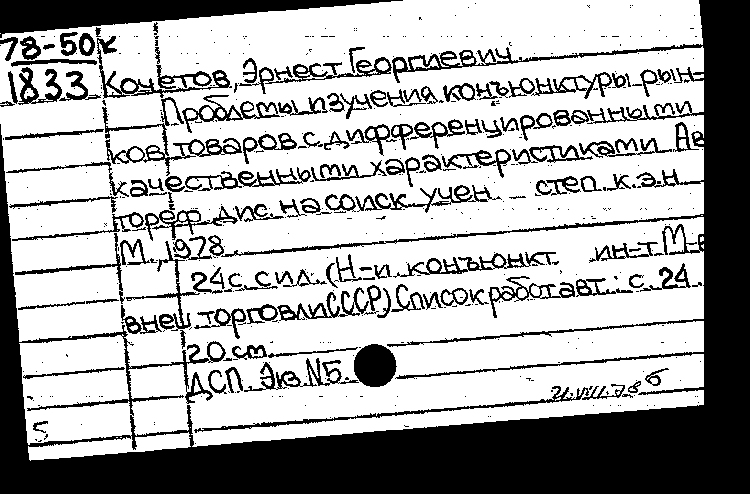 78-50к
1833 Кочетов, Эрнест Георгиевич.
Проблемы изучения конъюнктуры рын-
ков товаров с дифференцированными
качественными характеристиками Ав
тореф дис. на соиск учен степ к.э.н
М., 1978.
24с. с ил. (Н-и. конъюнкт. ин-т М-в
внеш. торговли СССР) Список работ авт.: с. 24.
20 см.
ДСП. Экз. №5.
21.VIII.78 б
5